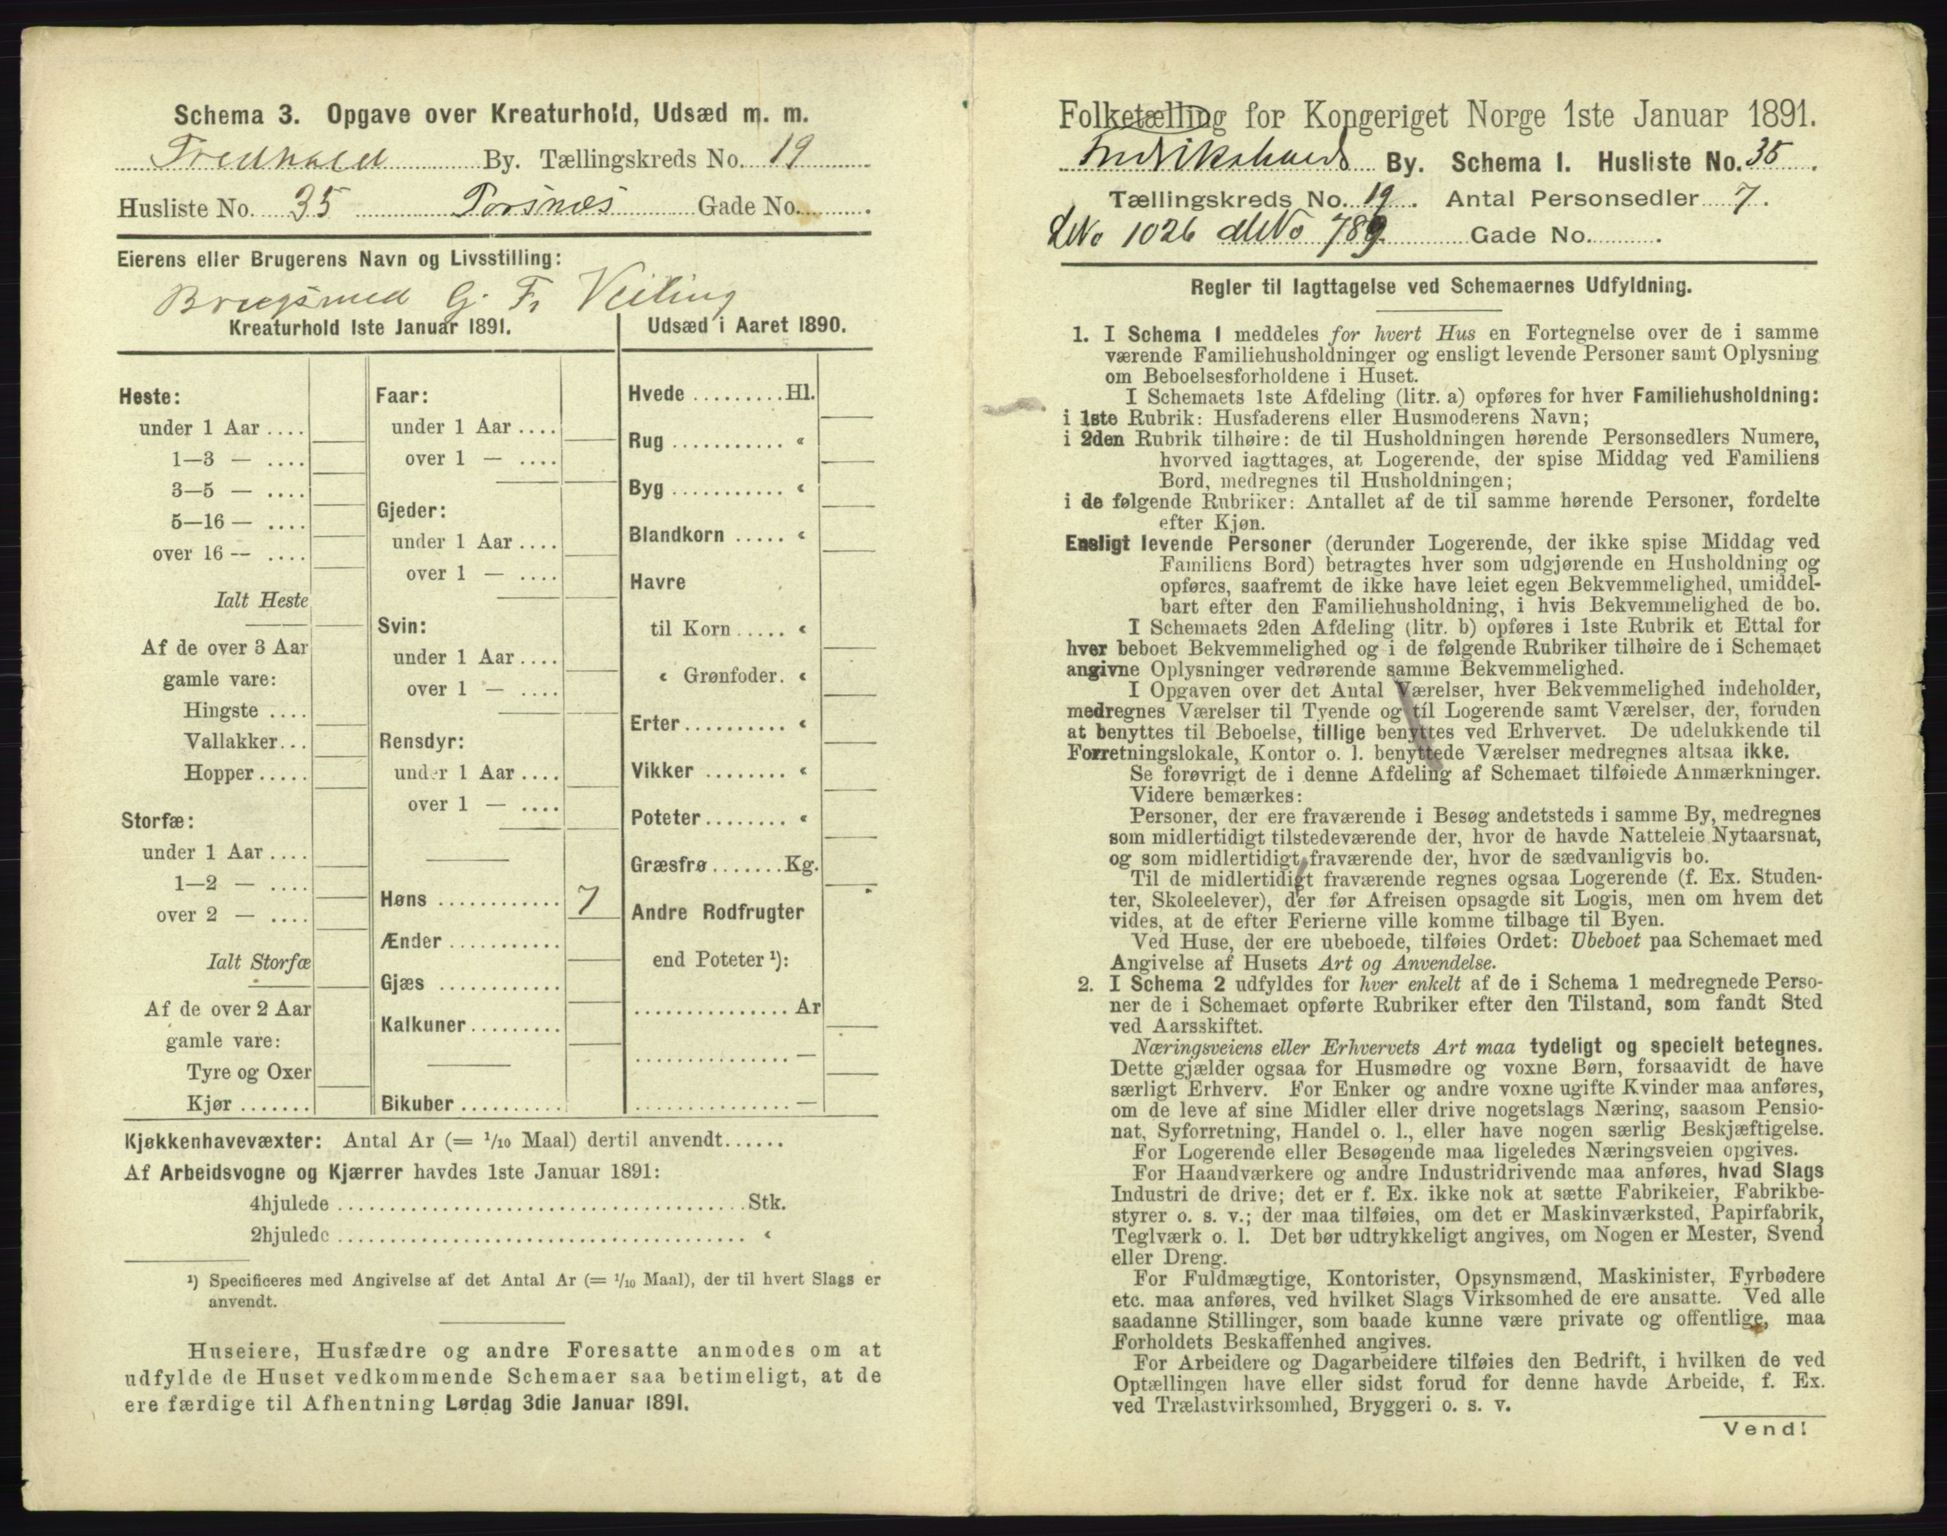 Schema 3. Opgave over Kreaturhold, Udsæd m. m.
Fredhald By. Tællingskreds No. 19
Husliste No. 35 Torsnæs Gade No.
Eierens eller Brugerens Navn og Livsstilling:
Brugsmed G. Fr Veiling
Kreaturhold 1ste Januar 1891.
Heste:
under 1 Aar ....
1—3 — ....
3—5 — ....
5—16 — ....
over 16 — ....
Ialt Heste
Af de over 3 Aar
gamle vare:
Hingste ....
Vallakker...
Hopper .....
Storfæ:
under 1 Aar ....
1—2 — ....
over 2 — ....
Ialt Storfæ
Af de over 2 Aar
gamle vare:
Tyre og Oxer
Kjør .......
Faar:
under 1 Aar ....
over 1 — ....
Gjeder:
under 1 Aar ....
over 1 — ....
Svin:
under 1 Aar ....
over 1 — ....
Rensdyr:
under 1 Aar ....
over 1 — ....
Høns ............ 7
Ænder ...........
Gjæs ............
Kalkuner .........
Bikuber ..........
Udsæd i Aaret 1890.
Hvede .........Hl.
Rug ........... “
Byg ........... “
Blandkorn ..... “
Havre
til Korn ..... “
“ Grønfoder. “
Erter ......... “
Vikker ........ “
Poteter ........ “
Græsfrø .......Kg.
Andre Rodfrugter
end Poteter ¹):
...............Ar
...............—
...............—
Kjøkkenhavevæxter: Antal Ar (= 1/10 Maal) dertil anvendt......
Af Arbeidsvogne og Kjærrer havdes 1ste Januar 1891:
4hjulede ........................................Stk.
2hjulede ........................................ “
¹) Specificeres med Angivelse af det Antal Ar (= 1/10 Maal), der til hvert Slags er
anvendt.
Huseiere, Husfædre og andre Foresatte anmodes om at
udfylde de Huset vedkommende Schemaer saa betimeligt, at de
ere færdige til Afhentning Lørdag 3die Januar 1891.
Folketælling for Kongeriget Norge 1ste Januar 1891.
Fredrikshalds By. Schema I. Husliste No. 35
Tællingskreds No. 19. Antal Personsedler 7.
LNo 1026 MNo 789 Gade No.
Regler til Iagttagelse ved Schemaernes Udfyldning.
1. I Schema 1 meddeles for hvert Hus en Fortegnelse over de i samme
værende Familiehusholdninger og ensligt levende Personer samt Oplysning
om Beboelsesforholdene i Huset.
I Schemaets 1ste Afdeling (litr. a) opføres for hver Familiehusholdning:
i 1ste Rubrik: Husfaderens eller Husmoderens Navn;
i 2den Rubrik tilhøire: de til Husholdningen hørende Personsedlers Numere,
hvorved iagttages, at Logerende, der spise Middag ved Familiens
Bord, medregnes til Husholdningen;
i de følgende Rubriker: Antallet af de til samme hørende Personer, fordelte
efter Kjøn.
Ensligt levende Personer (derunder Logerende, der ikke spise Middag ved
Familiens Bord) betragtes hver som udgjørende en Husholdning og
opføres, saafremt de ikke have leiet egen Bekvemmelighed, umiddel-
bart efter den Familiehusholdning, i hvis Bekvemmelighed de bo.
I Schemaets 2den Afdeling (litr. b) opføres i 1ste Rubrik et Ettal for
hver beboet Bekvemmelighed og i de følgende Rubriker tilhøire de i Schemaet
angivne Oplysninger vedrørende samme Bekvemmelighed.
I Opgaven over det Antal Værelser, hver Bekvemmelighed indeholder,
medregnes Værelser til Tyende og til Logerende samt Værelser, der, foruden
at benyttes til Beboelse, tillige benyttes ved Erhvervet. De udelukkende til
Forretningslokale, Kontor o. l. benyttede Værelser medregnes altsaa ikke.
Se forøvrigt de i denne Afdeling af Schemaet tilføiede Anmærkninger.
Videre bemærkes:
Personer, der ere fraværende i Besøg andetsteds i samme By, medregnes
som midlertidigt tilstedeværende der, hvor de havde Natteleie Nytaarsnat,
og som midlertidigt fraværende der, hvor de sædvanligvis bo.
Til de midlertidigt fraværende regnes ogsaa Logerende (f. Ex. Studen-
ter, Skoleelever), der før Afreisen opsagde sit Logis, men om hvem det
vides, at de efter Ferierne ville komme tilbage til Byen.
Ved Huse, der ere ubeboede, tilføies Ordet: Ubeboet paa Schemaet med
Angivelse af Husets Art og Anvendelse.
2. I Schema 2 udfyldes for hver enkelt af de i Schema 1 medregnede Perso-
ner de i Schemaet opførte Rubriker efter den Tilstand, som fandt Sted
ved Aarsskiftet.
Næringsveiens eller Erhvervets Art maa tydeligt og specielt betegnes.
Dette gjælder ogsaa for Husmødre og voxne Børn, forsaavidt de have
særligt Erhverv. For Enker og andre voxne ugifte Kvinder maa anføres,
om de leve af sine Midler eller drive nogetslags Næring, saasom Pensio-
nat, Syforretning, Handel o. l., eller have nogen særlig Beskjæftigelse.
For Logerende eller Besøgende maa ligeledes Næringsveien opgives.
For Haandværkere og andre Industridrivende maa anføres, hvad Slags
Industri de drive; det er f. Ex. ikke nok at sætte Fabrikeier, Fabrikbe-
styrer o. s. v.; der maa tilføies, om det er Maskinværksted, Papirfabrik,
Teglværk o. l. Det bør udtrykkeligt angives, om Nogen er Mester, Svend
eller Dreng.
For Fuldmægtige, Kontorister, Opsynsmænd, Maskinister, Fyrbødere
etc. maa anføres, ved hvilket Slags Virksomhed de ere ansatte. Ved alle
saadanne Stillinger, som baade kunne være private og offentlige, maa
Forholdets Beskaffenhed angives.
For Arbeidere og Dagarbeidere tilføies den Bedrift, i hvilken de ved
Optællingen have eller sidst forud for denne havde Arbeide, f. Ex.
ved Trælastvirksomhed, Bryggeri o. s. v.
Vend!